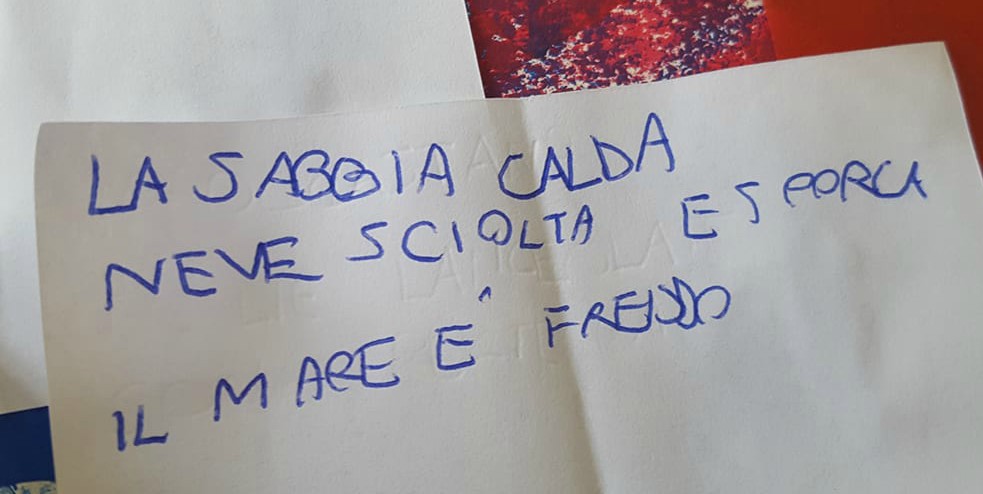 LA SABBIA CALDA
NEVE SCIOLTA E SPORCA
IL MARE È FREDDO